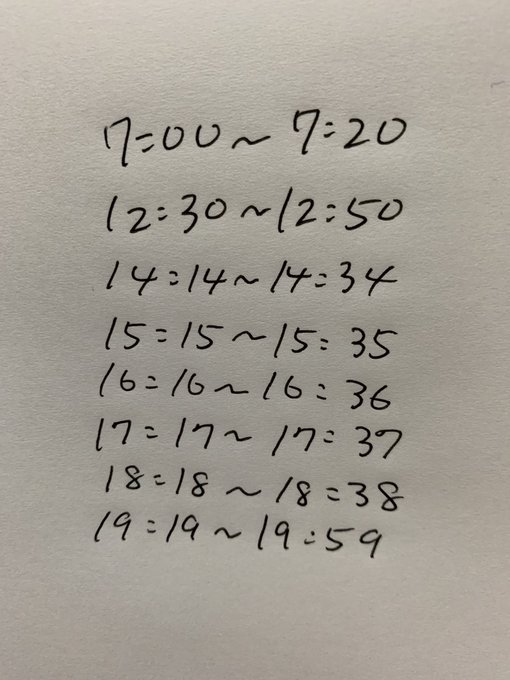 7:00~7:20
12:30~12:50
14:14~14:34
15:15~15:35
16:16~16:36
17:17~17:37
18:18~18:38
19:19~19:59